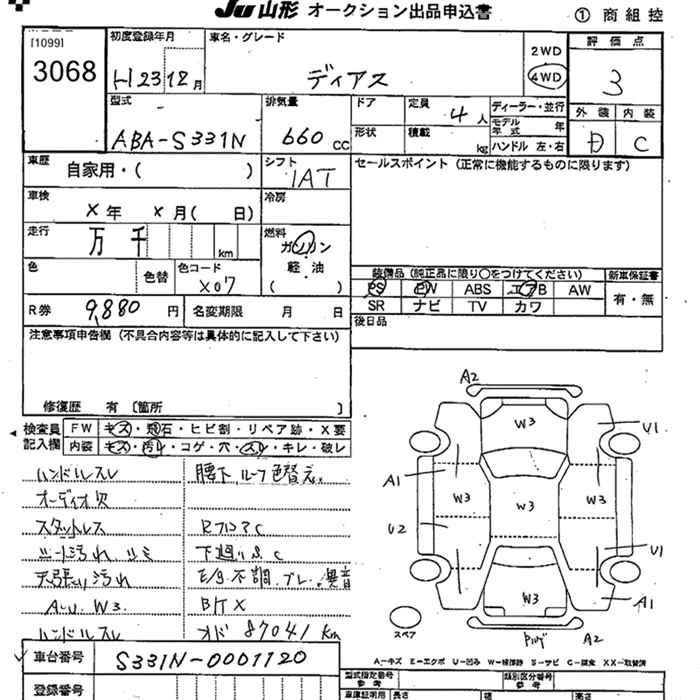 JU山形 オークション出品申込書
① 商組控
[1099]
3068
初度登録年月
H23 12月
車名・グレード
ディアス
2WD
4WD
評価点
3
型式
ABA-S331N
排気量
660cc
ドア
定員
4人
ディーラー・並行
モデル年式 年
外装 内装
D C
形状
積載
kg
ハンドル 左・右
車歴
自家用・( )
シフト
IAT
セールスポイント (正常に機能するものに限ります)
車検
X年 X月( 日)
冷房
走行
万 千
km
燃料
ガソリン
軽・油
( )
色
色替
色コード
X07
装備品 (純正品に限り○をつけてください)
新車保証書
PS PW ABS エアB AW
SR ナビ TV カワ
有・無
R券
9,880円
名変期限 月 日
後日品
注意事項申告欄 (不具合内容等は具体的に記入して下さい)
修復歴 有 〔箇所 〕
検査員記入欄
FW キズ・飛石・ヒビ割・リペア跡・X要
内装 キズ・汚レ・コゲ・穴・スレ・キレ・破レ
ハンドルスレ
腰下、ルーフ色替え。
オーディオ欠
スタットレス
シート汚れ シミ
下廻りS.C
天張り汚れ
E/g不調、ブレ。異音
A-U. W3
ハンドルスレ
オド 87041km
A2
W3
U1
A1
W3
W3
W3
U2
U1
W3
A1
スペア
A2
A…キズ E…エクボ U…凹み W…補修跡 S…サビ C…腐食 XX…取替済
車台番号
S331N-0001120
登録番号
型式指定番号
参考
類別区分番号
参考
車庫証明用
長さ
幅
高さ